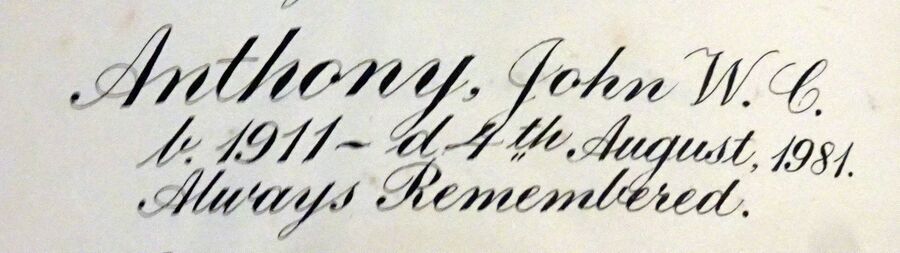 Anthony, John W. C.
b. 1911 ~ d 4th August, 1981.
Always Remembered.